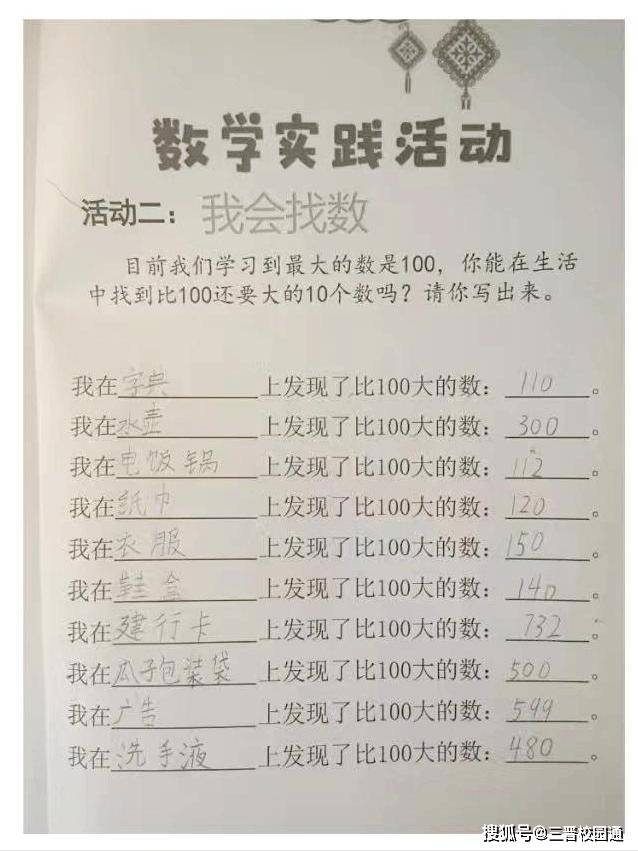 数学实践活动
活动二：我会找数
目前我们学习到最大的数是100，你能在生活
中找到比100还要大的10个数吗？请你写出来。
我在字典上发现了比100大的数：110。
我在水壶上发现了比100大的数：300。
我在电饭锅上发现了比100大的数：112。
我在纸巾上发现了比100大的数：120。
我在衣服上发现了比100大的数：150。
我在鞋盒上发现了比100大的数：140。
我在建行卡上发现了比100大的数：732。
我在瓜子包装袋上发现了比100大的数：500。
我在广告上发现了比100大的数：599。
我在洗手液上发现了比100大的数：480。
搜狐号@三晋校园通